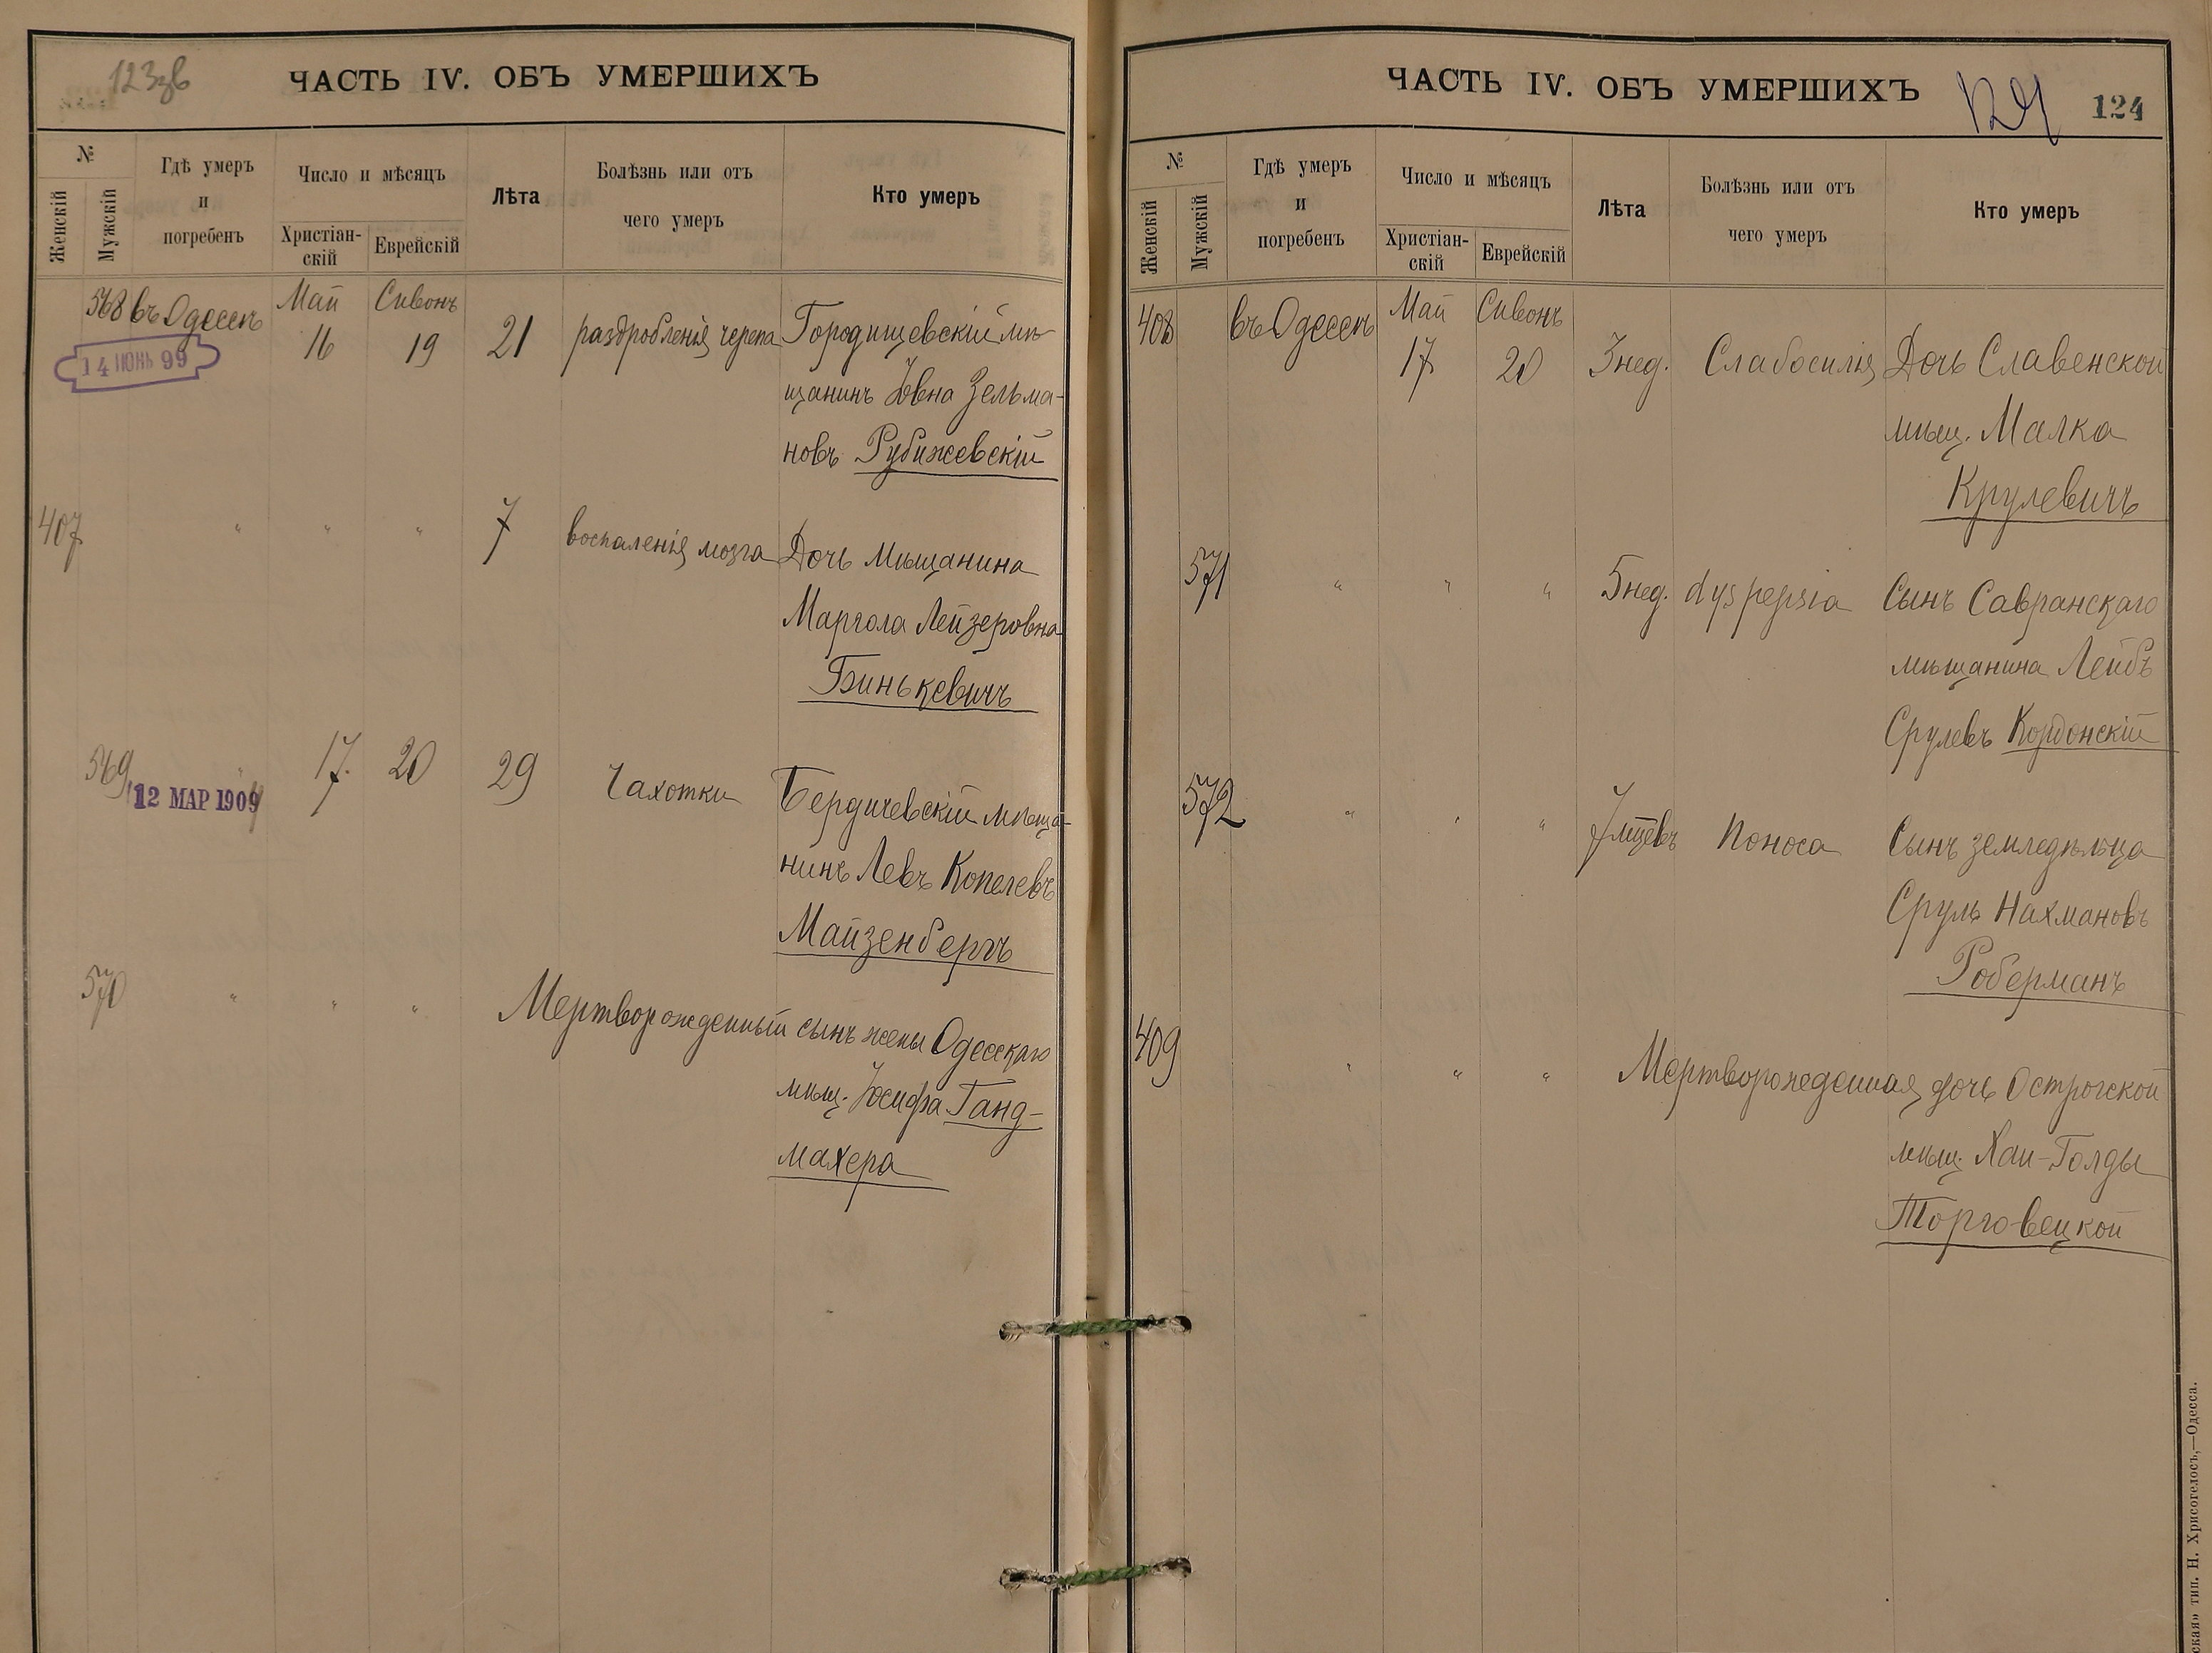 123зв
ЧАСТЬ IV. ОБЪ УМЕРШИХЪ
№
Женскій
Мужскій
Гдѣ умеръ
и
погребенъ
Число и мѣсяцъ
Христіан-
скій
Еврейскій
Лѣта
Болѣзнь или отъ
чего умеръ
Кто умеръ
568 въ Одессѣ Май 16 Сивонъ 19 21 раздробленія черепа Городищевскій мѣ-
щанинъ Іовна Зельма-
новъ Рубижевскій
14 ІЮНЬ 99
407 " " " 7 воспаленія мозга Дочь мѣщанина
Маргола Лейзеровна
Бинькевичъ
569 " 17. 20 29 Чахотки Бердичевскій мѣща-
нинъ Левъ Копелевъ
Майзенбергъ
12 МАР 1909
570 " " " Мертворожденный сынъ жены Одесскаго
мѣщ. Іосифа Ганд-
махера
ЧАСТЬ IV. ОБЪ УМЕРШИХЪ
124
124
№
Женскій
Мужскій
Гдѣ умеръ
и
погребенъ
Число и мѣсяцъ
Христіан-
скій
Еврейскій
Лѣта
Болѣзнь или отъ
чего умеръ
Кто умеръ
408 въ Одессѣ Май 17 Сивонъ 20 3 нед. Слабосилія Дочь Славенской
мѣщ. Малка
Крулевичъ
571 " " " 5 нед. dyspepsia Сынъ Савранскаго
мѣщанина Лейбъ
Срулевъ Кордонскій
572 " " " 7 мцевъ Поноса Сынъ земледѣльца
Сруль Нахмановъ
Роберманъ
409 " " " Мертворожденная дочь Острогской
мѣщ. Хаи-Голды
Торговецкой
ская» тип. Н. Хрисогелосъ,—Одесса.